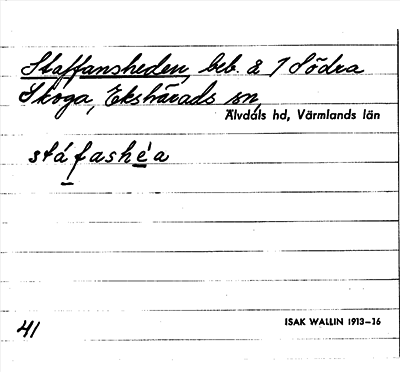 Staffansheden, beb. å 1 Södra
Skoga, Ekshärads sn,
Älvdals hd, Värmlands län
stáfashéa
41
ISAK WALLIN 1913–16